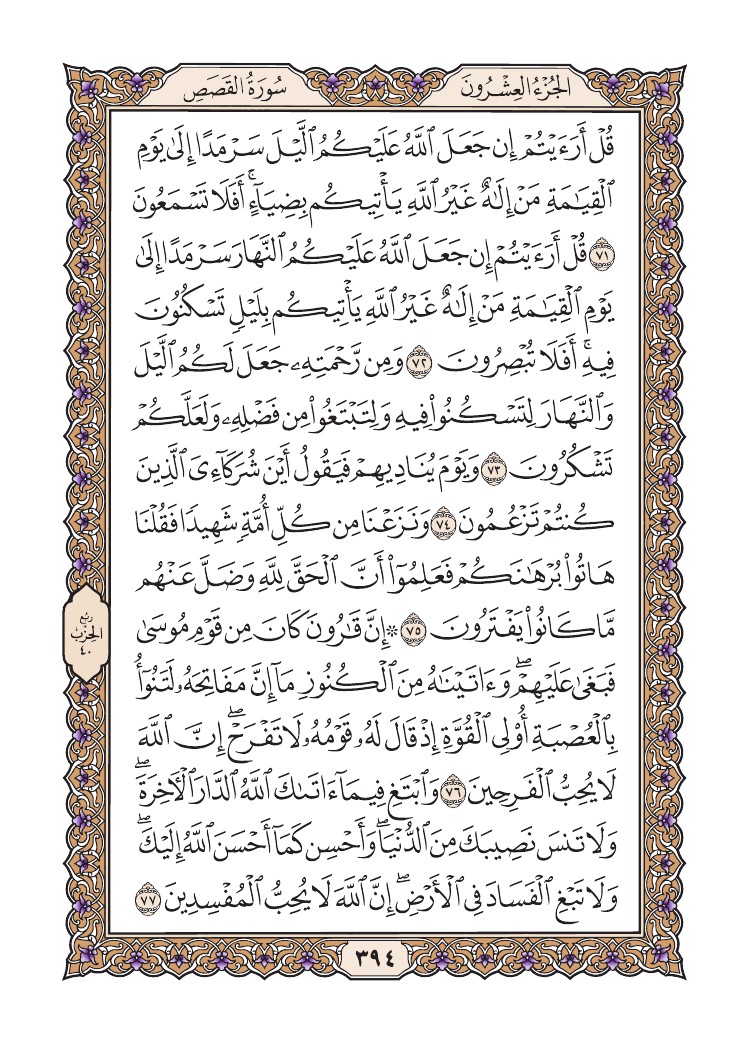 الجُزْءُ العِشْرُونَ
سُورَةُ القَصَصِ
قُلْ أَرَءَيْتُمْ إِن جَعَلَ ٱللَّهُ عَلَيْكُمُ ٱلَّيْلَ سَرْمَدًا إِلَىٰ يَوْمِ
ٱلْقِيَٰمَةِ مَنْ إِلَٰهٌ غَيْرُ ٱللَّهِ يَأْتِيكُم بِضِيَآءٍ ۖ أَفَلَا تَسْمَعُونَ
٧١ قُلْ أَرَءَيْتُمْ إِن جَعَلَ ٱللَّهُ عَلَيْكُمُ ٱلنَّهَارَ سَرْمَدًا إِلَىٰ
يَوْمِ ٱلْقِيَٰمَةِ مَنْ إِلَٰهٌ غَيْرُ ٱللَّهِ يَأْتِيكُم بِلَيْلٍ تَسْكُنُونَ
فِيهِ ۚ أَفَلَا تُبْصِرُونَ ٧٢ وَمِن رَّحْمَتِهِۦ جَعَلَ لَكُمُ ٱلَّيْلَ
وَٱلنَّهَارَ لِتَسْكُنُوا۟ فِيهِ وَلِتَبْتَغُوا۟ مِن فَضْلِهِۦ وَلَعَلَّكُمْ
تَشْكُرُونَ ٧٣ وَيَوْمَ يُنَادِيهِمْ فَيَقُولُ أَيْنَ شُرَكَآءِىَ ٱلَّذِينَ
كُنتُمْ تَزْعُمُونَ ٧٤ وَنَزَعْنَا مِن كُلِّ أُمَّةٍ شَهِيدًا فَقُلْنَا
هَاتُوا۟ بُرْهَٰنَكُمْ فَعَلِمُوٓا۟ أَنَّ ٱلْحَقَّ لِلَّهِ وَضَلَّ عَنْهُم
مَّا كَانُوا۟ يَفْتَرُونَ ٧٥ ۞ إِنَّ قَٰرُونَ كَانَ مِن قَوْمِ مُوسَىٰ
فَبَغَىٰ عَلَيْهِمْ ۖ وَءَاتَيْنَٰهُ مِنَ ٱلْكُنُوزِ مَآ إِنَّ مَفَاتِحَهُۥ لَتَنُوٓأُ
بِٱلْعُصْبَةِ أُو۟لِى ٱلْقُوَّةِ إِذْ قَالَ لَهُۥ قَوْمُهُۥ لَا تَفْرَحْ ۖ إِنَّ ٱللَّهَ
لَا يُحِبُّ ٱلْفَرِحِينَ ٧٦ وَٱبْتَغِ فِيمَآ ءَاتَىٰكَ ٱللَّهُ ٱلدَّارَ ٱلْءَاخِرَةَ ۖ
وَلَا تَنسَ نَصِيبَكَ مِنَ ٱلدُّنْيَا ۖ وَأَحْسِن كَمَآ أَحْسَنَ ٱللَّهُ إِلَيْكَ ۖ
وَلَا تَبْغِ ٱلْفَسَادَ فِى ٱلْأَرْضِ ۖ إِنَّ ٱللَّهَ لَا يُحِبُّ ٱلْمُفْسِدِينَ ٧٧
رُبْع
الحِزْب
٤٠
٣٩٤